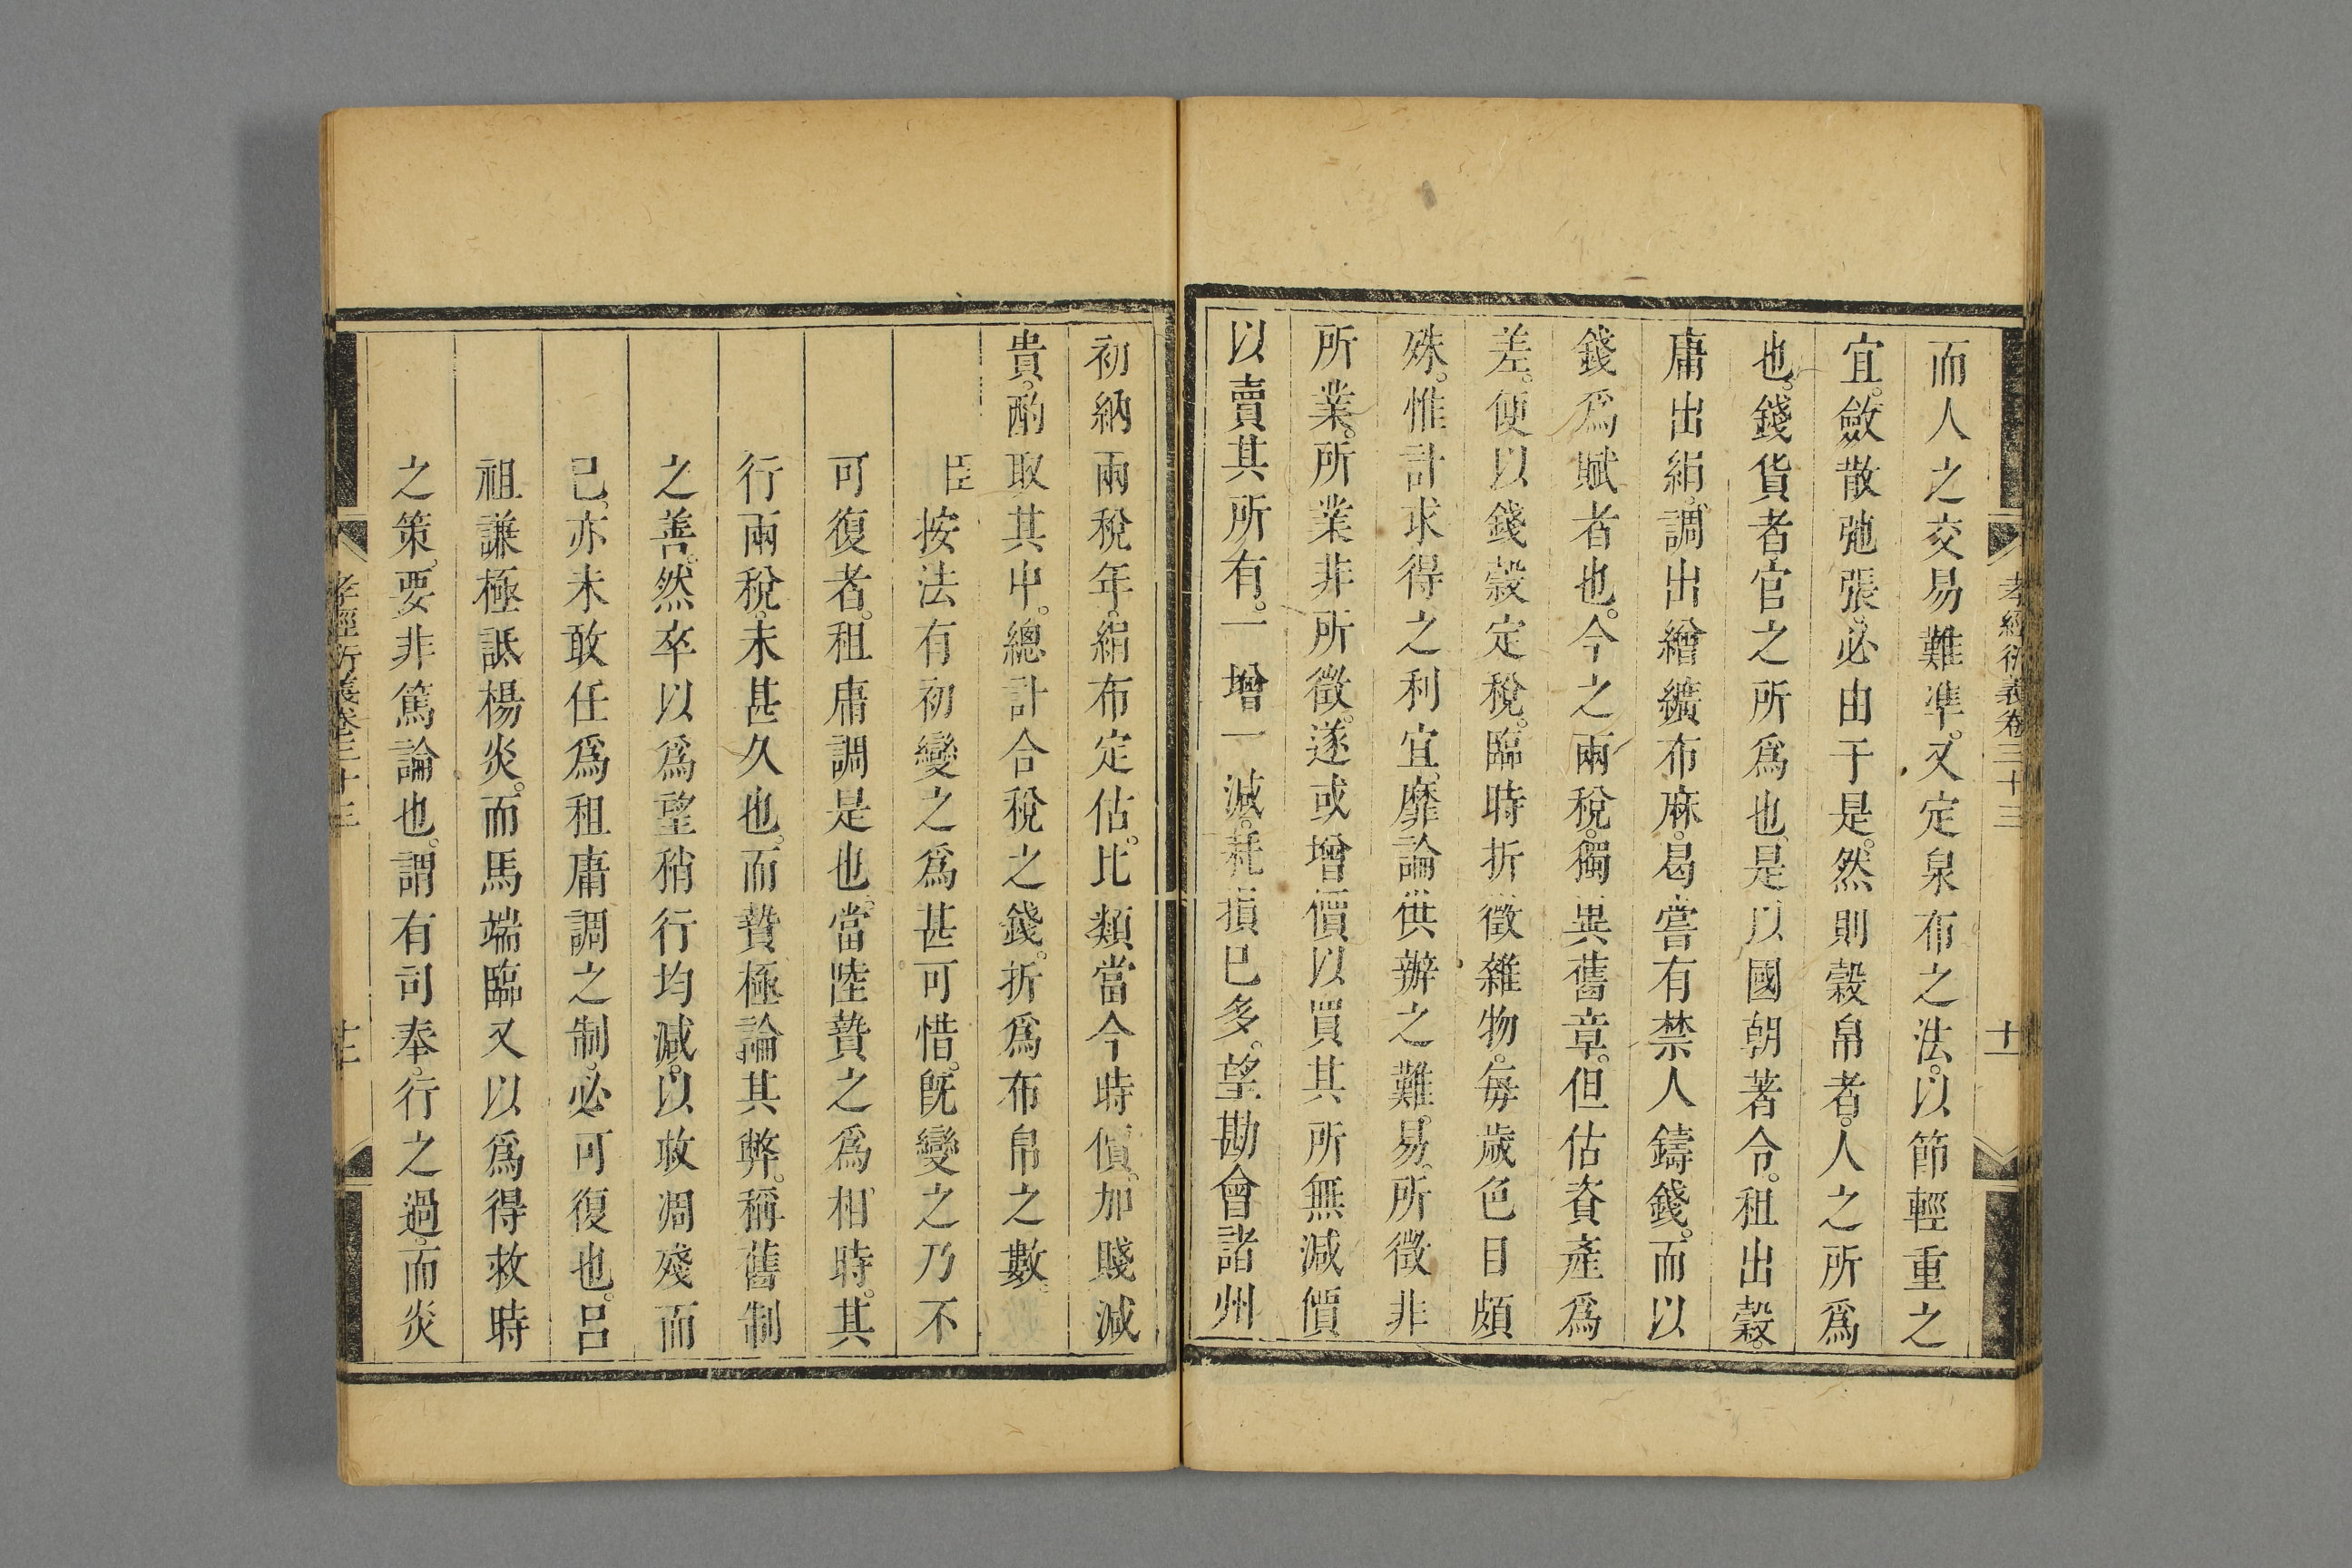 孝經衍義卷三十三
十一
而人之交易難準。又定泉布之法。以節輕重之
宜。斂散弛張。必由于是。然則穀帛者。人之所爲
也。錢貨者官之所爲也。是以國朝著令。租出穀。
庸出絹。調出繒纊布麻。曷嘗有禁人鑄錢。而以
錢爲賦者也。今之兩稅。獨異舊章。但估資產爲
差。便以錢穀定稅。臨時折徵雜物。每歲色目頗
殊。惟計求得之利宜。靡論供辦之難易。所徵非
所業。所業非所徵。遂或增價以買其所無減價
以賣其所有。一增一減。耗損已多。望勘會諸州
初納兩稅年。絹布定估。比類當今時價。加賤減
貴。酌取其中。總計合稅之錢。折爲布帛之數。
臣按法有初變之爲甚可惜。旣變之乃不
可復者。租庸調是也。當陸贄之爲相時。其
行兩稅。未甚久也。而贄極論其弊。稱舊制
之善。然卒以爲望稍行均減。以救凋殘而
已。亦未敢任爲租庸調之制。必可復也。呂
祖謙極詆楊炎。而馬端臨又以爲得救時
之策。要非篤論也。謂有司奉行之過。而炎
孝經衍義卷三十三
十二